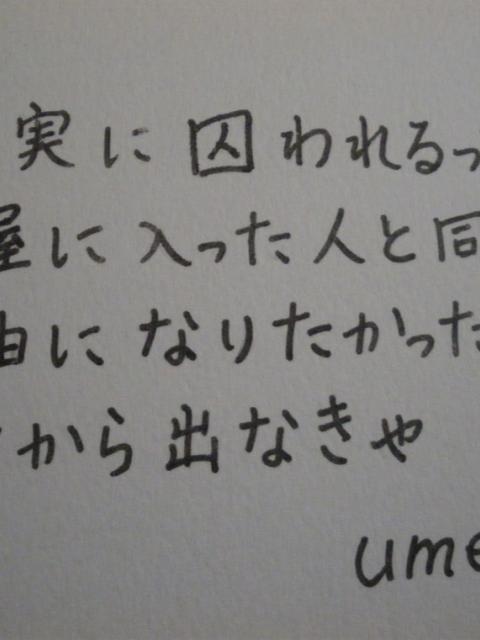 実に囚われるっ
屋に入った人と同
由になりたかった
から出なきゃ
ume